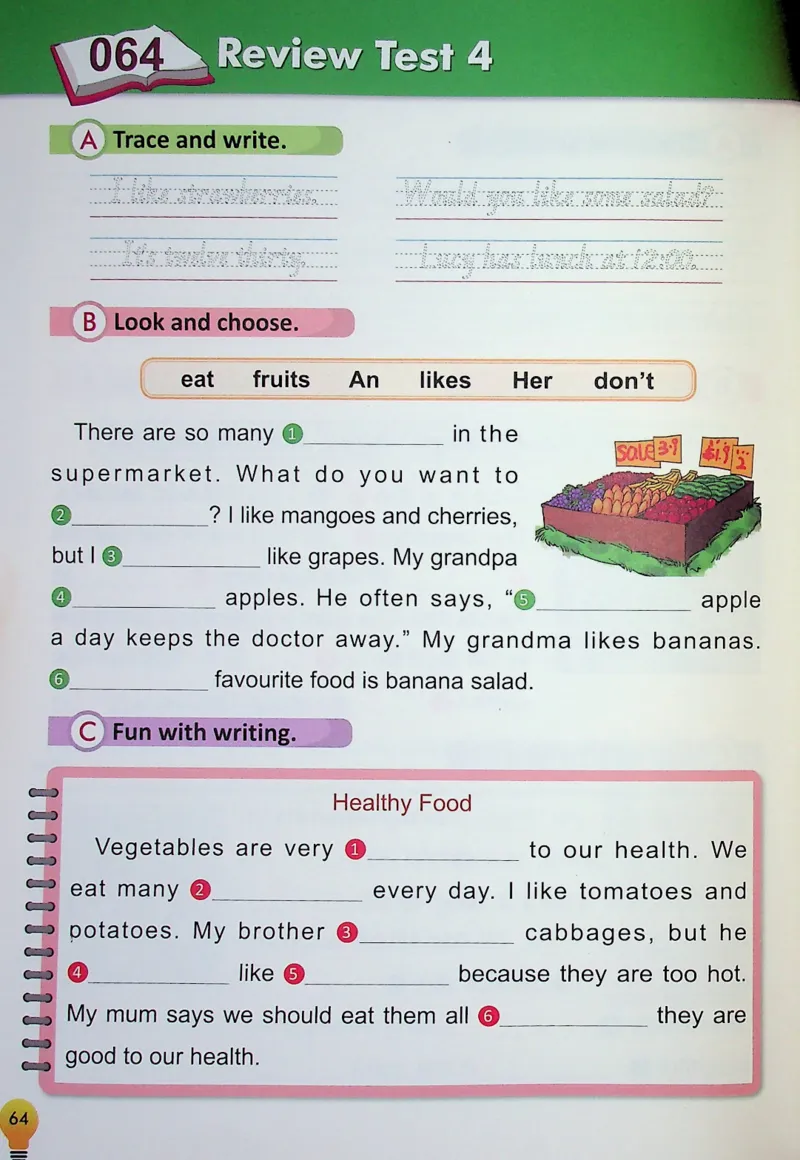 064 Review Test 4
A Trace and write.
I like strawberries. Would you like some salad?
It's twelve thirty. Lucy has lunch at 12:00.
B Look and choose.
eat fruits An likes Her don't
There are so many 1____________ in the
supermarket. What do you want to
2____________? I like mangoes and cherries,
but I 3____________ like grapes. My grandpa
4____________ apples. He often says, “5____________ apple
a day keeps the doctor away.” My grandma likes bananas.
6____________ favourite food is banana salad.
Sale 3.9 $1.9 2
C Fun with writing.
Healthy Food
Vegetables are very 1____________ to our health. We
eat many 2____________ every day. I like tomatoes and
potatoes. My brother 3____________ cabbages, but he
4____________ like 5____________ because they are too hot.
My mum says we should eat them all 6____________ they are
good to our health.
64